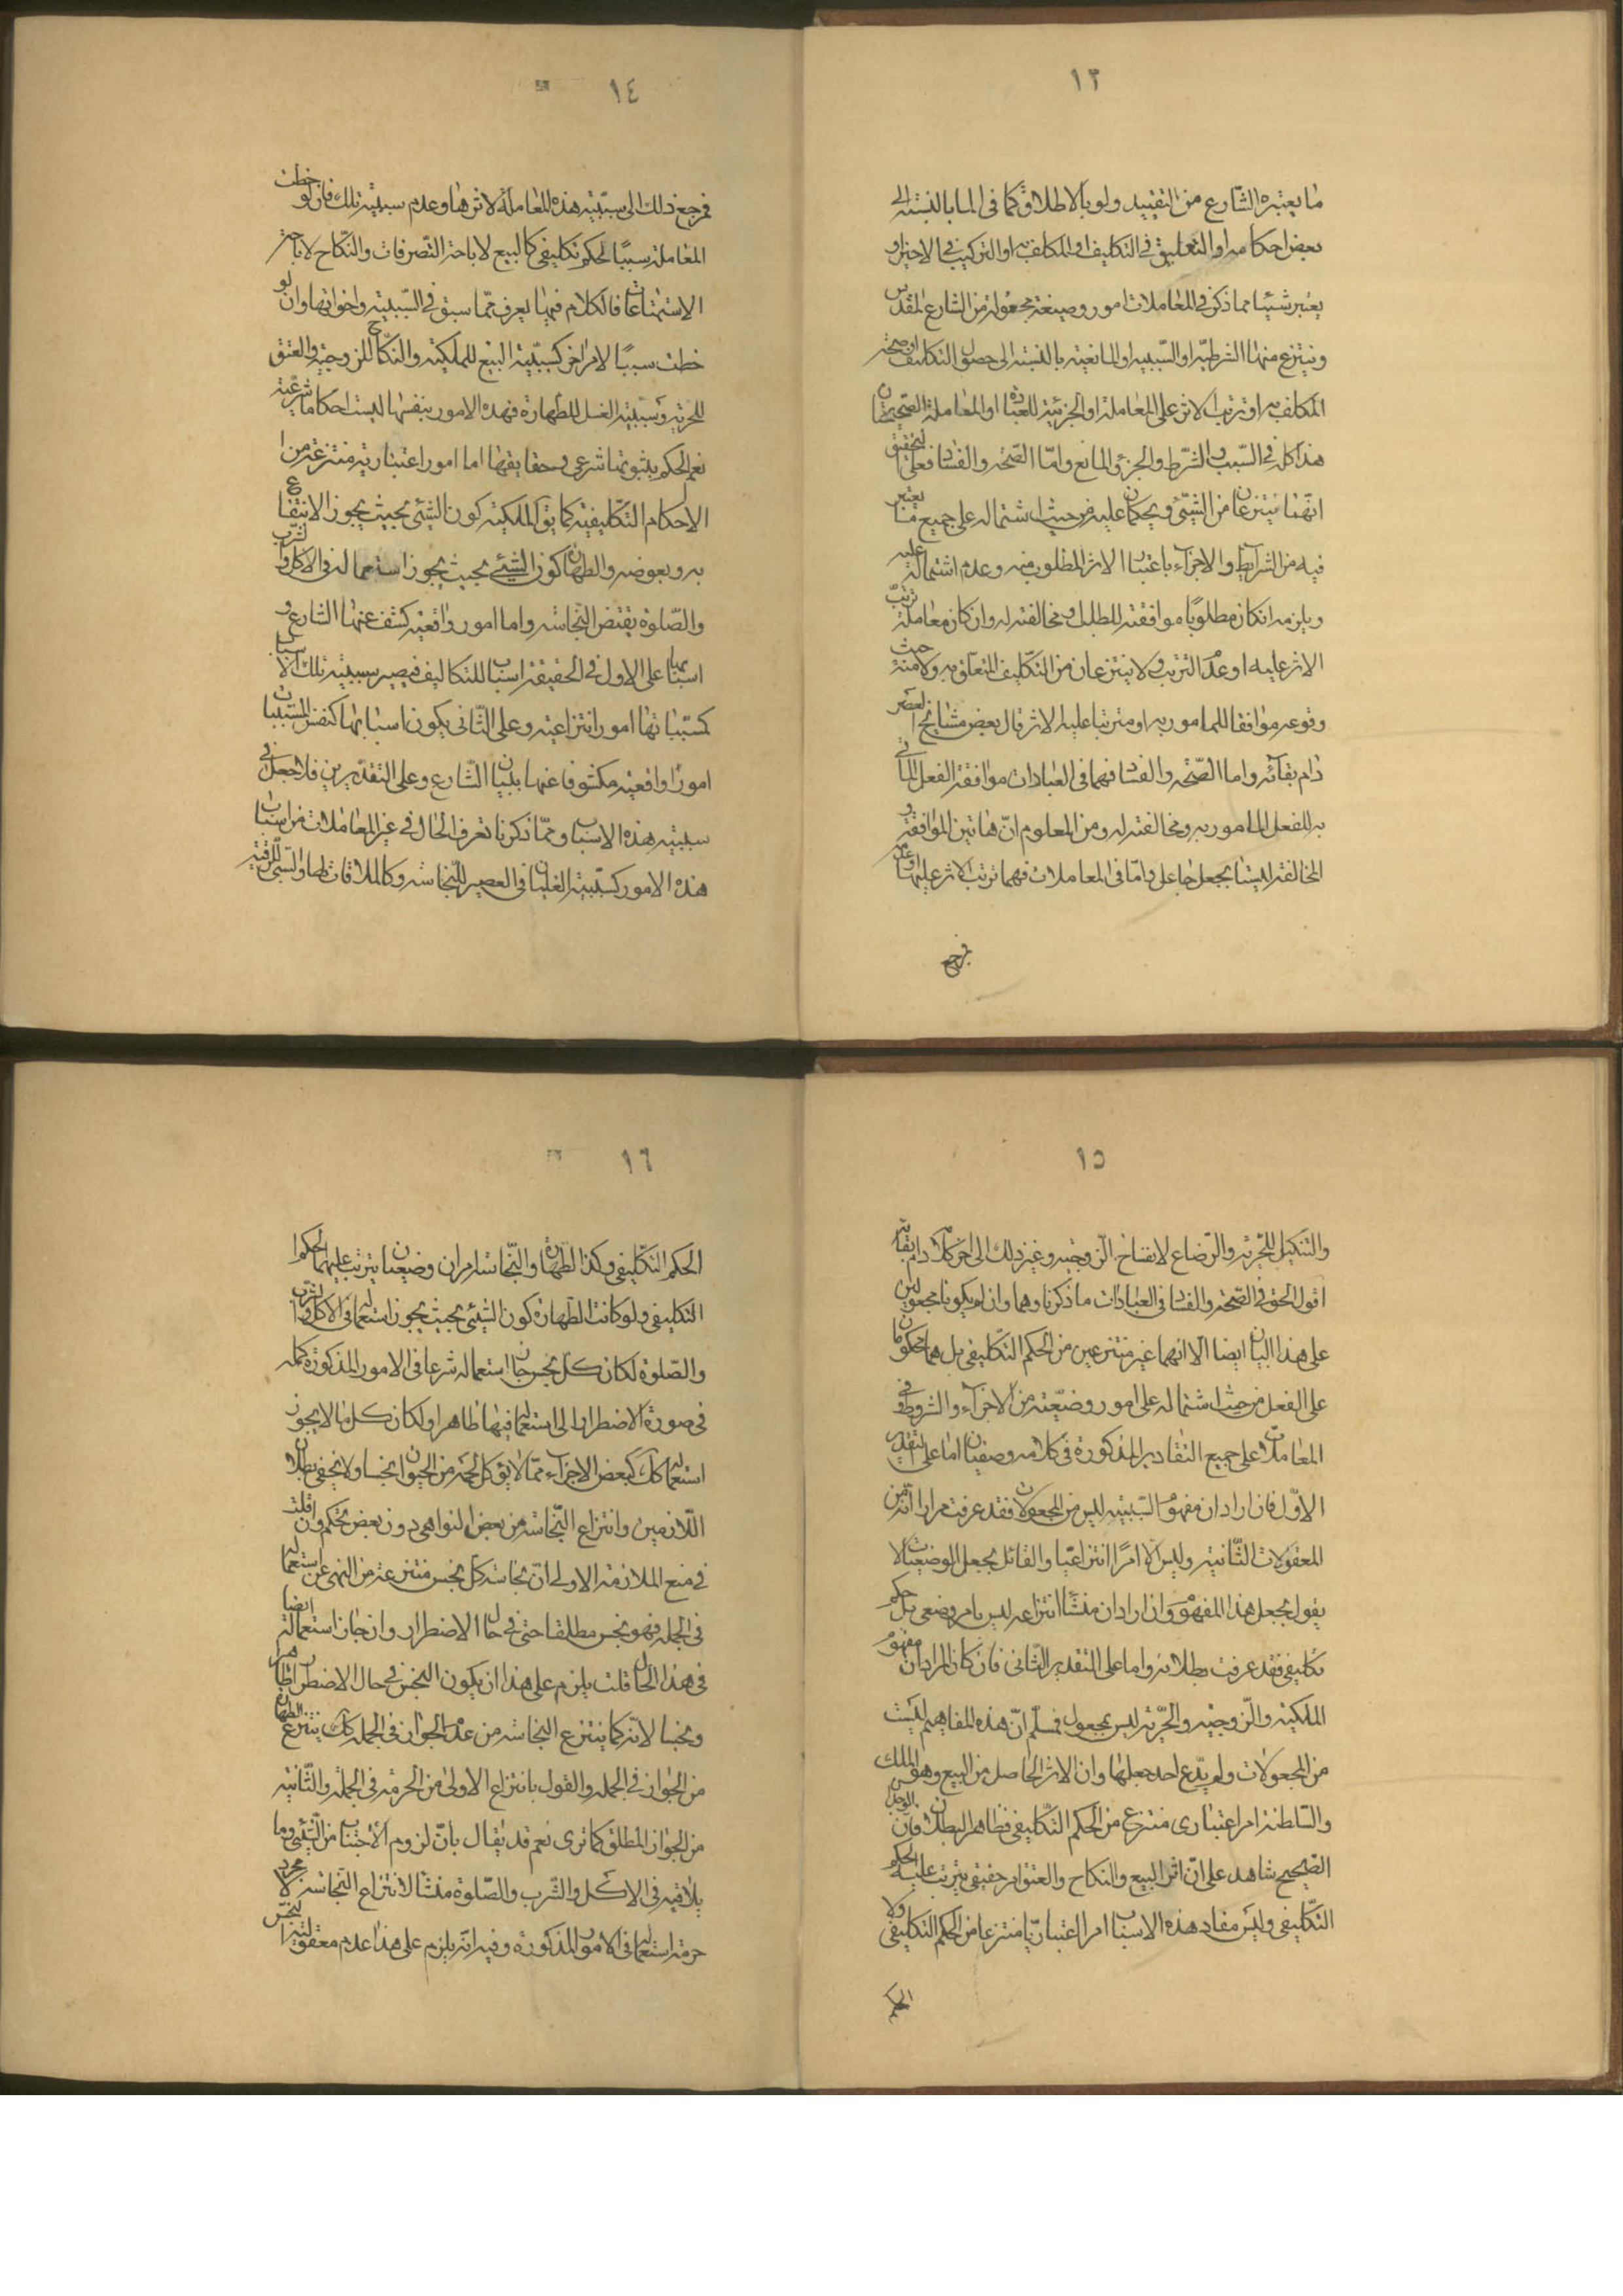 ١٣
ما يعتبره الشارع من التقييد ولو بالاطلاق كما في الما بالنسبة الى
بعض احكامه او التعليق في التكليف او المكلف به او التركيب في الاجزاء و
يعتبر شيئا مما ذكر في المعاملات امور وضيعة مجعولة من الشارع المقدس
وينتزع منها الشرطيه او السببيه او المانعيه بالنسبة الى حصول التكليف او صحة
المكلف به او ترتب الاثر على المعاملة او الجزئية للعبادة او المعاملة الصحيحتان
هذا كله في السبب والشرط والجزء والمانع واما الصحة والفساد فعلى التحقيق
انهما ينتزعان من الشيئ ويحكمان عليه من حيث اشتماله على جميع ما يعتبر
فيه من الشرايط والاجزاء باعتبار الاثر المطلوب منه وعدم اشتماله عليه
ويلزمه انكان مطلوبا موافقته للطلب ومخالفته له وان كان معاملة ترتب
الاثر عليه او عدم الترتب ولا ينتزعان من التكليف المتعلق به ولا من حيث
وقوعه موافقا للمامور به او مترتبا عليه الاثر قال بعض مشايخ العصر
دام بقائه واما الصحة والفساد فهما في العبادات موافقة الفعل الماتي
به للفعل المامور به ومخالفته له ومن المعلوم ان هاتين الموافقة و
المخالفة ليستا بجعل جاعل واما في المعاملات فهما ترتب الاثر عليها وعدمه
فرجع
١٤
فرجع ذلك الى سببية هذه المعاملة لاثرها وعدم سببية تلك فان لوحظت
المعاملة سببا لحكم تكليفي كالبيع لاباحة التصرفات والنكاح لاباحة
الاستمتاعات فالكلام فيها يعرف مما سبق في السببية واخواتها وان لو
حظت سببا لامر اخر كسببية البيع للملكية والنكاح للزوجية والعتق
للحرية وسببية الغسل للطهارة فهذه الامور بنفسها ليست احكاما شرعية
نعم الحكم بثبوتها شرعي وحقايقها اما امور اعتبارية منتزعة من ا
الاحكام التكليفية كما يق الملكية كون الشيئ بحيث يجوز الانتفاع
به وبعوضه والطهارة كون الشيئ بحيث يجوز استعماله في الاكل والشرب
والصلوة نقيض النجاسة واما امور واقعية كشف عنها الشارع و
اسبابها على الاول في الحقيقة اسباب للتكاليف فيصير سببية تلك الاسباب
كمسبباتها امورا انتزاعية وعلى الثاني يكون اسبابها كنفس المسببات
امورا واقعية مكشوفا عنها ببيان الشارع وعلى التقديرين فلا جعل في
سببية هذه الاسباب ومما ذكرنا تعرف الحال في غير المعاملات من اسباب
هذه الامور كسببية الغليان في العصير للنجاسة وكالملاقات لها والسبي للرقية
١٥
والتنكيل للحرية والرضاع لانفساخ الزوجية وغير ذلك الى اخر كلامه دام بقائه
اقول الحق في الصحة والفساد في العبادات ما ذكرنا وهما وان لم يكونا مجعولين
على هذا البيان ايضا الا انهما غير منتزعين من الحكم التكليفي بل هما محكومان
على الفعل من حيث اشتماله على امور وضيعية من الاجزاء والشروط وفي
المعاملات على جميع التقادير المذكورة في كلامه وضعيان اما على التقدير
الاول فان اراد ان مفهوم السببية ليس من المجعولات فقد عرفت مرارا انه من
المعقولات الثانية وليس الا امرا انتزاعيا والقائل بجعل الوضعيات لا
يقول بجعل هذا المفهوم وان اراد ان منشأ انتزاعه ليس بامر وضعي بل حكم
تكليفي فقد عرفت بطلانه واما على التقدير الثاني فان كان المراد ان مفهوم
الملكية والزوجية والحرية ليس بمجعول فمسلم ان هذه المفاهيم ليست
من المجعولات ولم يدع احد جعلها وان الاثر الحاصل من البيع وهو الملك
والسلطنة امر اعتباري منتزع من الحكم التكليفي فظاهر البطلان فان الوجدان
الصحيح شاهد على ان اثر البيع والنكاح والعتق امر حقيقي يترتب عليه الحكم
التكليفي وليس مفاد هذه الاسباب امرا اعتباريا منتزعا من الحكم التكليفي ولا
الحكم
١٦
الحكم التكليفي وكذا الطهارة والنجاسة امران وضعيان يترتب عليهما الحكم ا
التكليفي ولو كانت الطهارة كون الشيئ بحيث يجوز استعماله في الاكل والشرب
والصلوة لكان كل نجس جاز استعماله شرعا في الامور المذكورة كما
في صورة الاضطرار الى استعماله فيها طاهرا ولكان كل ما لا يجوز
استعماله كك كبعض الاجزاء مما لا يؤكل لحمه من الحيوان نجسا ولا يخفى بطلان
اللازمين وانتزاع النجاسة من بعض النواهي دون بعض تحكم وان قلت
في منع الملازمة الاولى ان نجاسة كل نجس منتزعة من النهي عن استعماله
في الجملة فهو نجس مطلقا حتى في حال الاضطرار وان جاز استعماله ايضا
في هذا الحال قلت يلزم على هذا ان يكون النجس في حال الاضطرار طاهرا
ونجسا لانه كما ينتزع النجاسة من عدم الجواز في الجملة كك ينتزع الطهارة
من الجواز في الجملة والقول بانتزاع الاولى من الحرمة في الجملة والثانية
من الجواز المطلق كما ترى نعم قد يقال بان لزوم الاجتناب من الشيئ وما
يلاقيه في الاكل والشرب والصلوة منشا لانتزاع النجاسة لا مجرد
حرمة استعماله في الامور المذكورة وفيه انه يلزم على هذا عدم معقولية التنجس